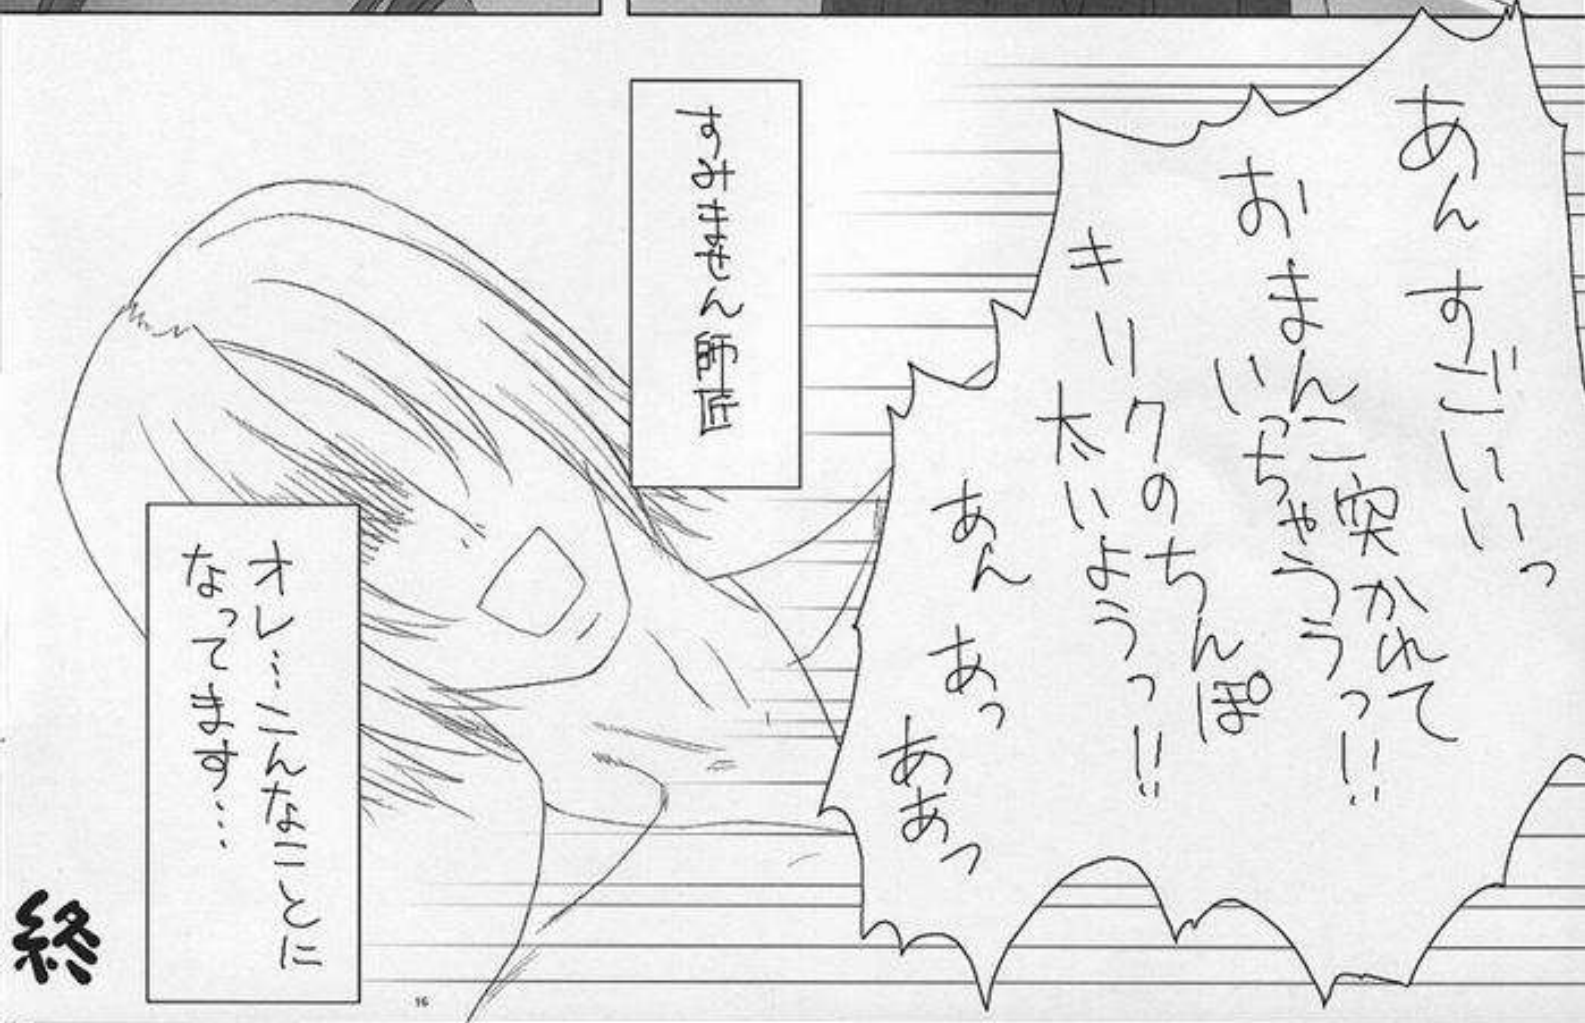 あんすごいいいいっ
おまんこ突かれて
いっちゃううっ!!
キリクのちんぽ
太いようっ!!
あん あっ
ああっ
すみません師匠
オレ…こんなことに
なってます…
終
16